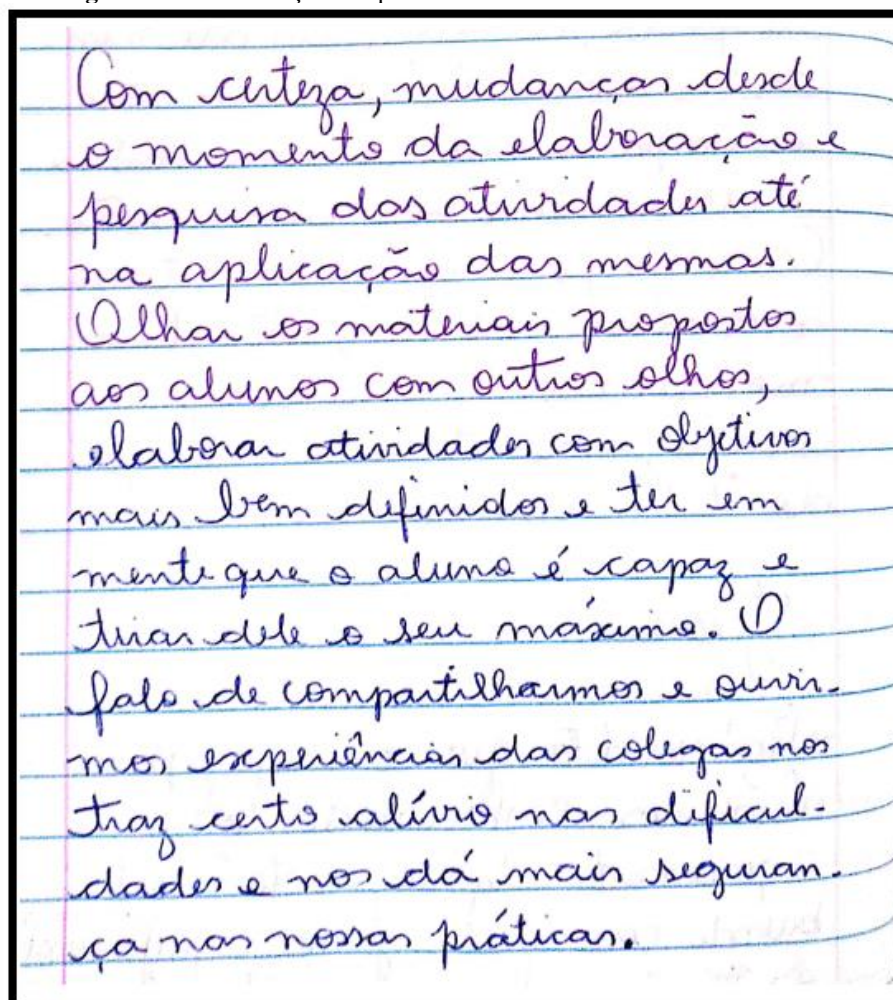 Com certeza, mudanças desde
o momento da elaboração e
pesquisa das atividades até
na aplicação das mesmas.
Olhar os materiais propostos
aos alunos com outros olhos,
elaborar atividades com objetivos
mais bem definidos e ter em
mente que o aluno é capaz e
tirar dele o seu máximo. O
fato de compartilharmos e ouvir-
mos experiências das colegas nos
traz certo alívio nas dificul-
dades e nos dá mais seguran-
ça nas nossas práticas.